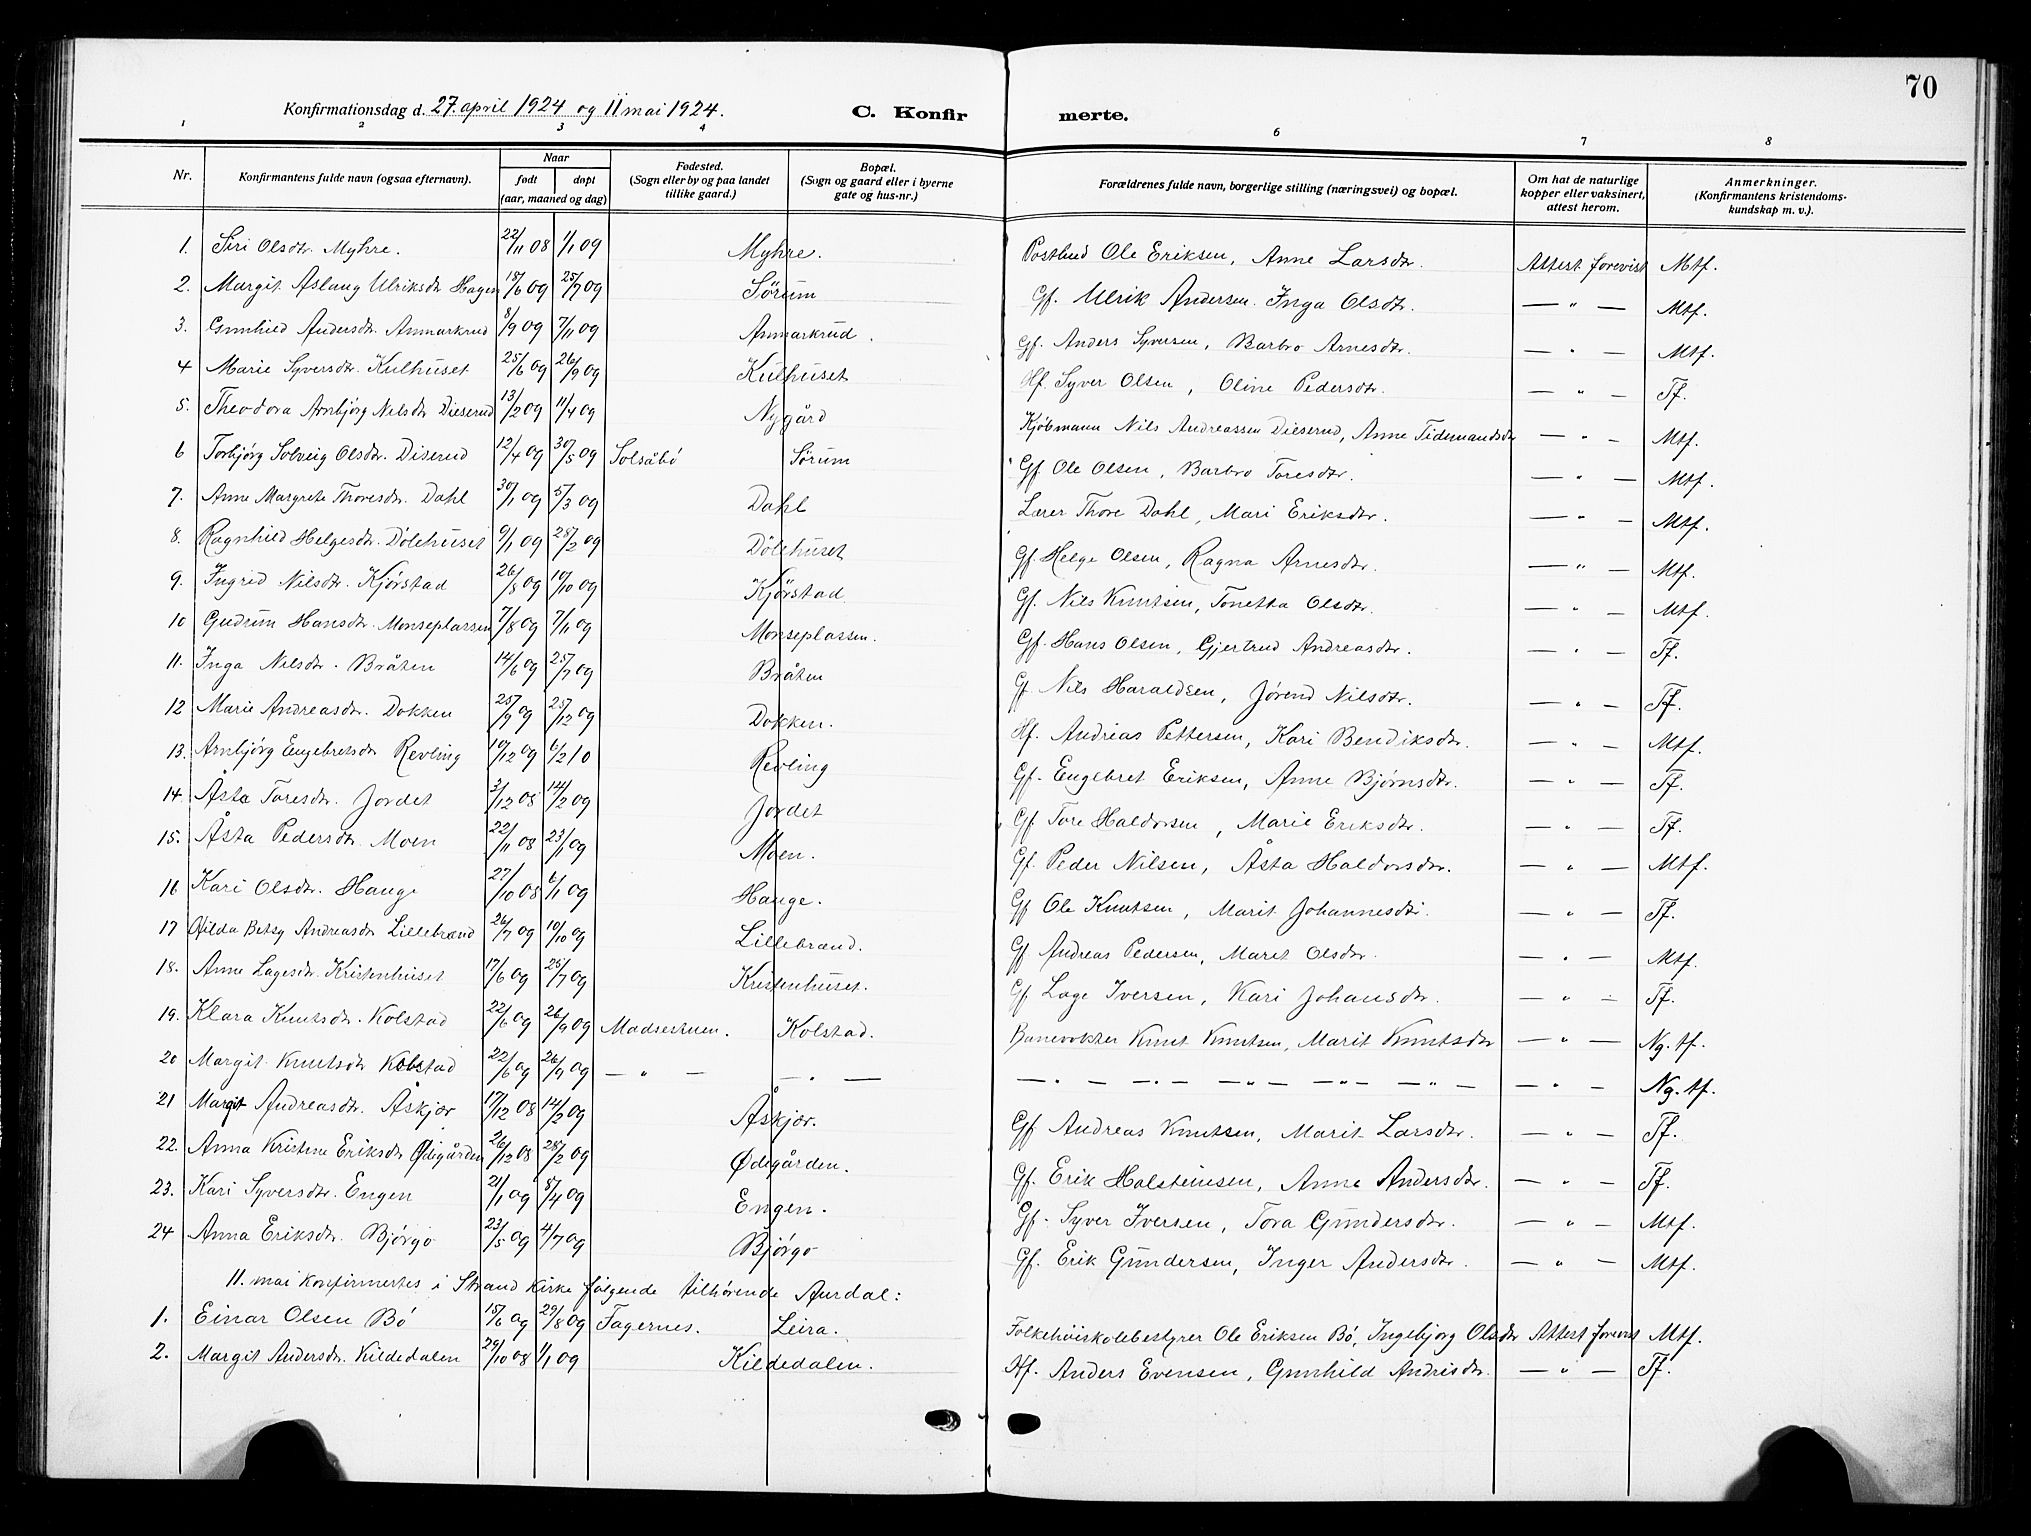 70
Konfirmationsdag d. 27. april 1924 og 11 mai 1924. C. Konfirmerte.
1 2 3 4 6 7 8
Nr. Konfirmantens fulde navn (ogsaa efternavn). Naar født døpt (aar, maaned og dag) Fødested. (Sogn eller by og paa landet tillike gaard.) Bopæl. (Sogn og gaard eller i byerne gate og hus-nr.) Forældrenes fulde navn, borgerlige stilling (næringsvei) og bopæl. Om hat de naturlige kopper eller vaksinert, attest herom. Anmerkninger. (Konfirmantens kristendomskundskap m. v.).
1. Siri Olsdtr. Myhre. 22/11 08 1/1 09 Myhre. Postbud Ole Eriksen, Anne Larsdtr. Attest forevist Mtf.
2. Margit Aslaug Ulriksdtr Hagen 15/6 09 25/7 09 Sørum Gf. Ulrik Andersen. Inga Olsdtr. — " — Mtf.
3. Gunhild Andersdtr. Anmarkrud 8/9 09 7/11 09 Anmarkrud. Gf. Anders Syversen, Barbro Arnesdtr. — " — Mtf.
4 Marie Syversdtr. Kulhuset 25/6 09 26/9 09 Kulhuset Hf. Syver Olsen, Oline Pedersdtr. — " — Tf.
5. Theodora Arnbjørg Nilsdtr Dieserud 13/2 09 11/4 09 Nygård Kjøbmann Nils Andreassen Dieserud, Anne Tidemandsdtr — " — Mtf.
6 Torbjørg Solveig Olsdtr. Diserud 12/4 09 30/5 09 Solsåbø Sørum Gf Ole Olsen, Barbro Toresdtr. — " — Mtf.
7. Anne Margrete Thoresdtr. Dahl 30/1 09 5/3 09 Dahl Lærer Thore Dahl, Mari Eriksdtr. — " — Mtf.
8. Ragnhild Helgesdtr. Dölehuset 9/1 09 28/2 09 Dölehuset Gf. Helge Olsen, Ragna Arnesdtr. — " — Mtf.
9. Ingrid Nilsdtr. Kjørstad 26/5 09 10/10 09 Kjørstad Gf. Nils Knutsen, Tonetta Olsdtr. — " — Mtf.
10 Gudrun Hansdtr. Monseplassen 7/8 09 7/11 09 Monseplassen. Gf. Hans Olsen, Gjertrud Andreasdtr. — " — Tf.
11. Inga Nilsdtr. Bråten 14/6 09 25/7 09 Bråten Gf Nils Haraldsen, Jørend Nilsdtr. — " — Tf.
12 Marie Andreasdtr. Dokken 25/9 09 25/12 09 Dokken. Hf. Andreas Pettersen, Kari Bendiksdtr. — " — Mtf.
13. Arnbjørg Engebretsdtr Revling 10/12 09 6/2 10 Revling Gf. Engebret Eriksen, Anne Bjørnsdtr. — " — Tf.
14 Åsta Toresdtr. Jordet 3/12 08 14/2 09 Jordet Gf Tore Haldorsen, Marie Eriksdtr. — " — Tf.
15. Åsta Pedersdtr. Moen 22/11 08 23/1 09 Moen. Gf. Peder Nilsen, Åsta Haldorsdtr. — " — Mtf.
16 Kari Olsdtr. Hauge 27/10 08 6/1 09 Hauge. Gf Ole Knutsen, Marit Johannesdtr. — " — Tf.
17 Hilda Betsy Andreasdtr Lillebrænd 26/7 09 10/10 09 Lillebrænd. Gf Andreas Pedersen, Marit Olsdtr. — " — Mtf.
18. Anne Lagesdtr. Kristenhuset 17/6 09 25/7 09 Kristenhuset. Gf. Lage Iversen, Kari Johansdtr. — " — Tf.
19. Klara Knutsdtr. Kolstad 22/6 09 26/9 09 Madsestuen. Kolstad. Banevokter Knut Knutsen, Marit Knutsdtr — " — Ng. tf.
20 Margit Knutsdtr Kolstad 22/6 09 26/9 09 — " — — " — — " — " — " — " — " — — " — Ng. tf.
21 Margit Andreasdtr. Åskjær 17/12 08 14/2 09 Åskjær. Gf Andreas Knutsen, Marit Larsdtr. — " — Tf.
22. Anna Kristine Eriksdtr Ødegården 26/12 08 28/2 09 Ødegården. Gf. Erik Holsteinsen, Anne Andersdtr. — " — Tf.
23. Kari Syversdtr. Engen 21/1 09 8/4 09 Engen. Gf. Syver Iversen, Tora Gundersdtr. — " — Mtf.
24 Anna Eriksdtr. Bjørgo 23/5 09 4/7 09 Bjørgo Gf. Erik Gundersen, Inger Andersdtr. — " — Mtf.
11. mai konfirmertes i Strand kirke følgende tilhørende Aurdal:
1. Einar Olsen Bø 15/6 09 29/8 09 Fagernes. Leira. Folkehøiskolebestyrer Ole Eriksen Bø, Ingebjørg Olsdtr Attest forevist Mtf.
2. Margit Andersdtr. Kildedalen 29/10 08 1/1 09 Kildedalen. Hf. Anders Evensen, Gunhild Andrisdtr. — " — Tf.